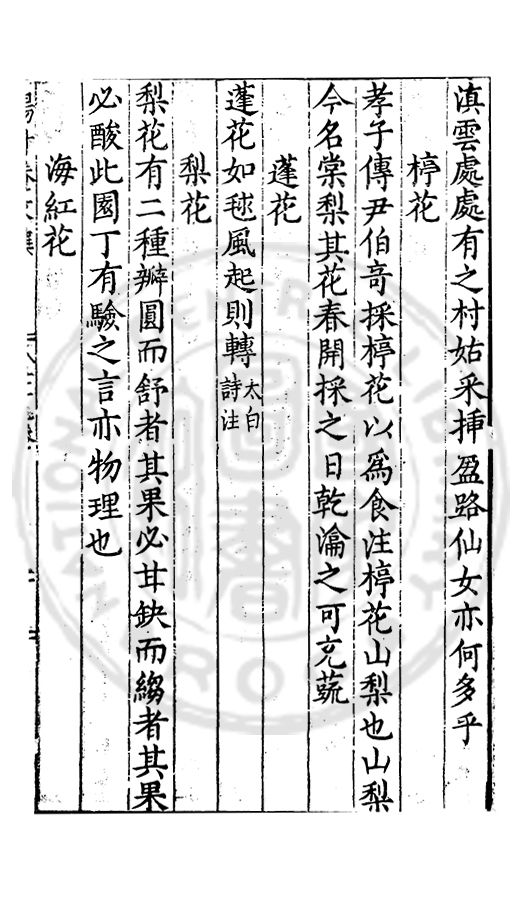 滇雲處處有之村姑采揷盈路仙女亦何多乎
楟花
孝子傳尹伯竒採楟花以爲食注楟花山梨也山梨
今名棠梨其花春開採之日乾瀹之可充蔬
蓬花
蓬花如毬風起則轉太白詩注
梨花
梨花有二種瓣圓而舒者其果必甘缺而縐者其果
必酸此園丁有驗之言亦物理也
海紅花